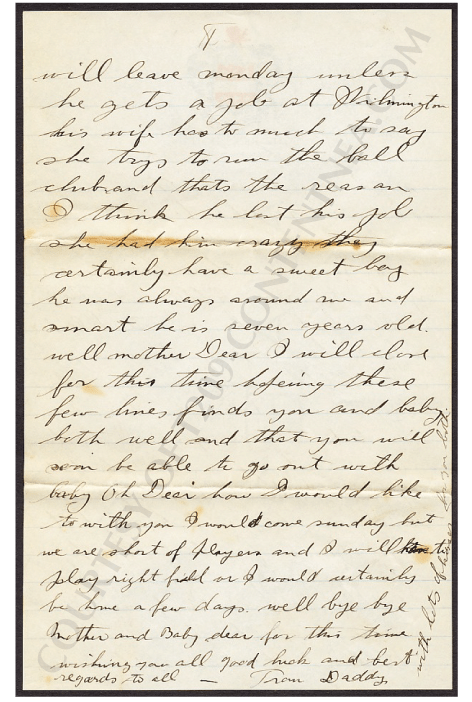 will leave monday unless
he gets a job at Wilmington
his wife has to much to say
she trys to run the ball
club and thats the reason
I think he lost his job
she had him crazy they
certainly have a sweet boy
he was always around me and
smart he is seven years old.
well mother Dear I will close
for this time hopeing these
few lines finds you and baby
both well and that you will
soon be able to go out with
baby Oh Dear how I would like
to with you I would come sunday but
we are short of players and I will have to
play right field or I would certainly
be home a few days. well bye bye
Mother and Baby dear for this time
wishing you all good luck and best
regards to all — From Daddy
with lots of kisses for you both
COURTESY OF 19 09 CONTENTINE .COM